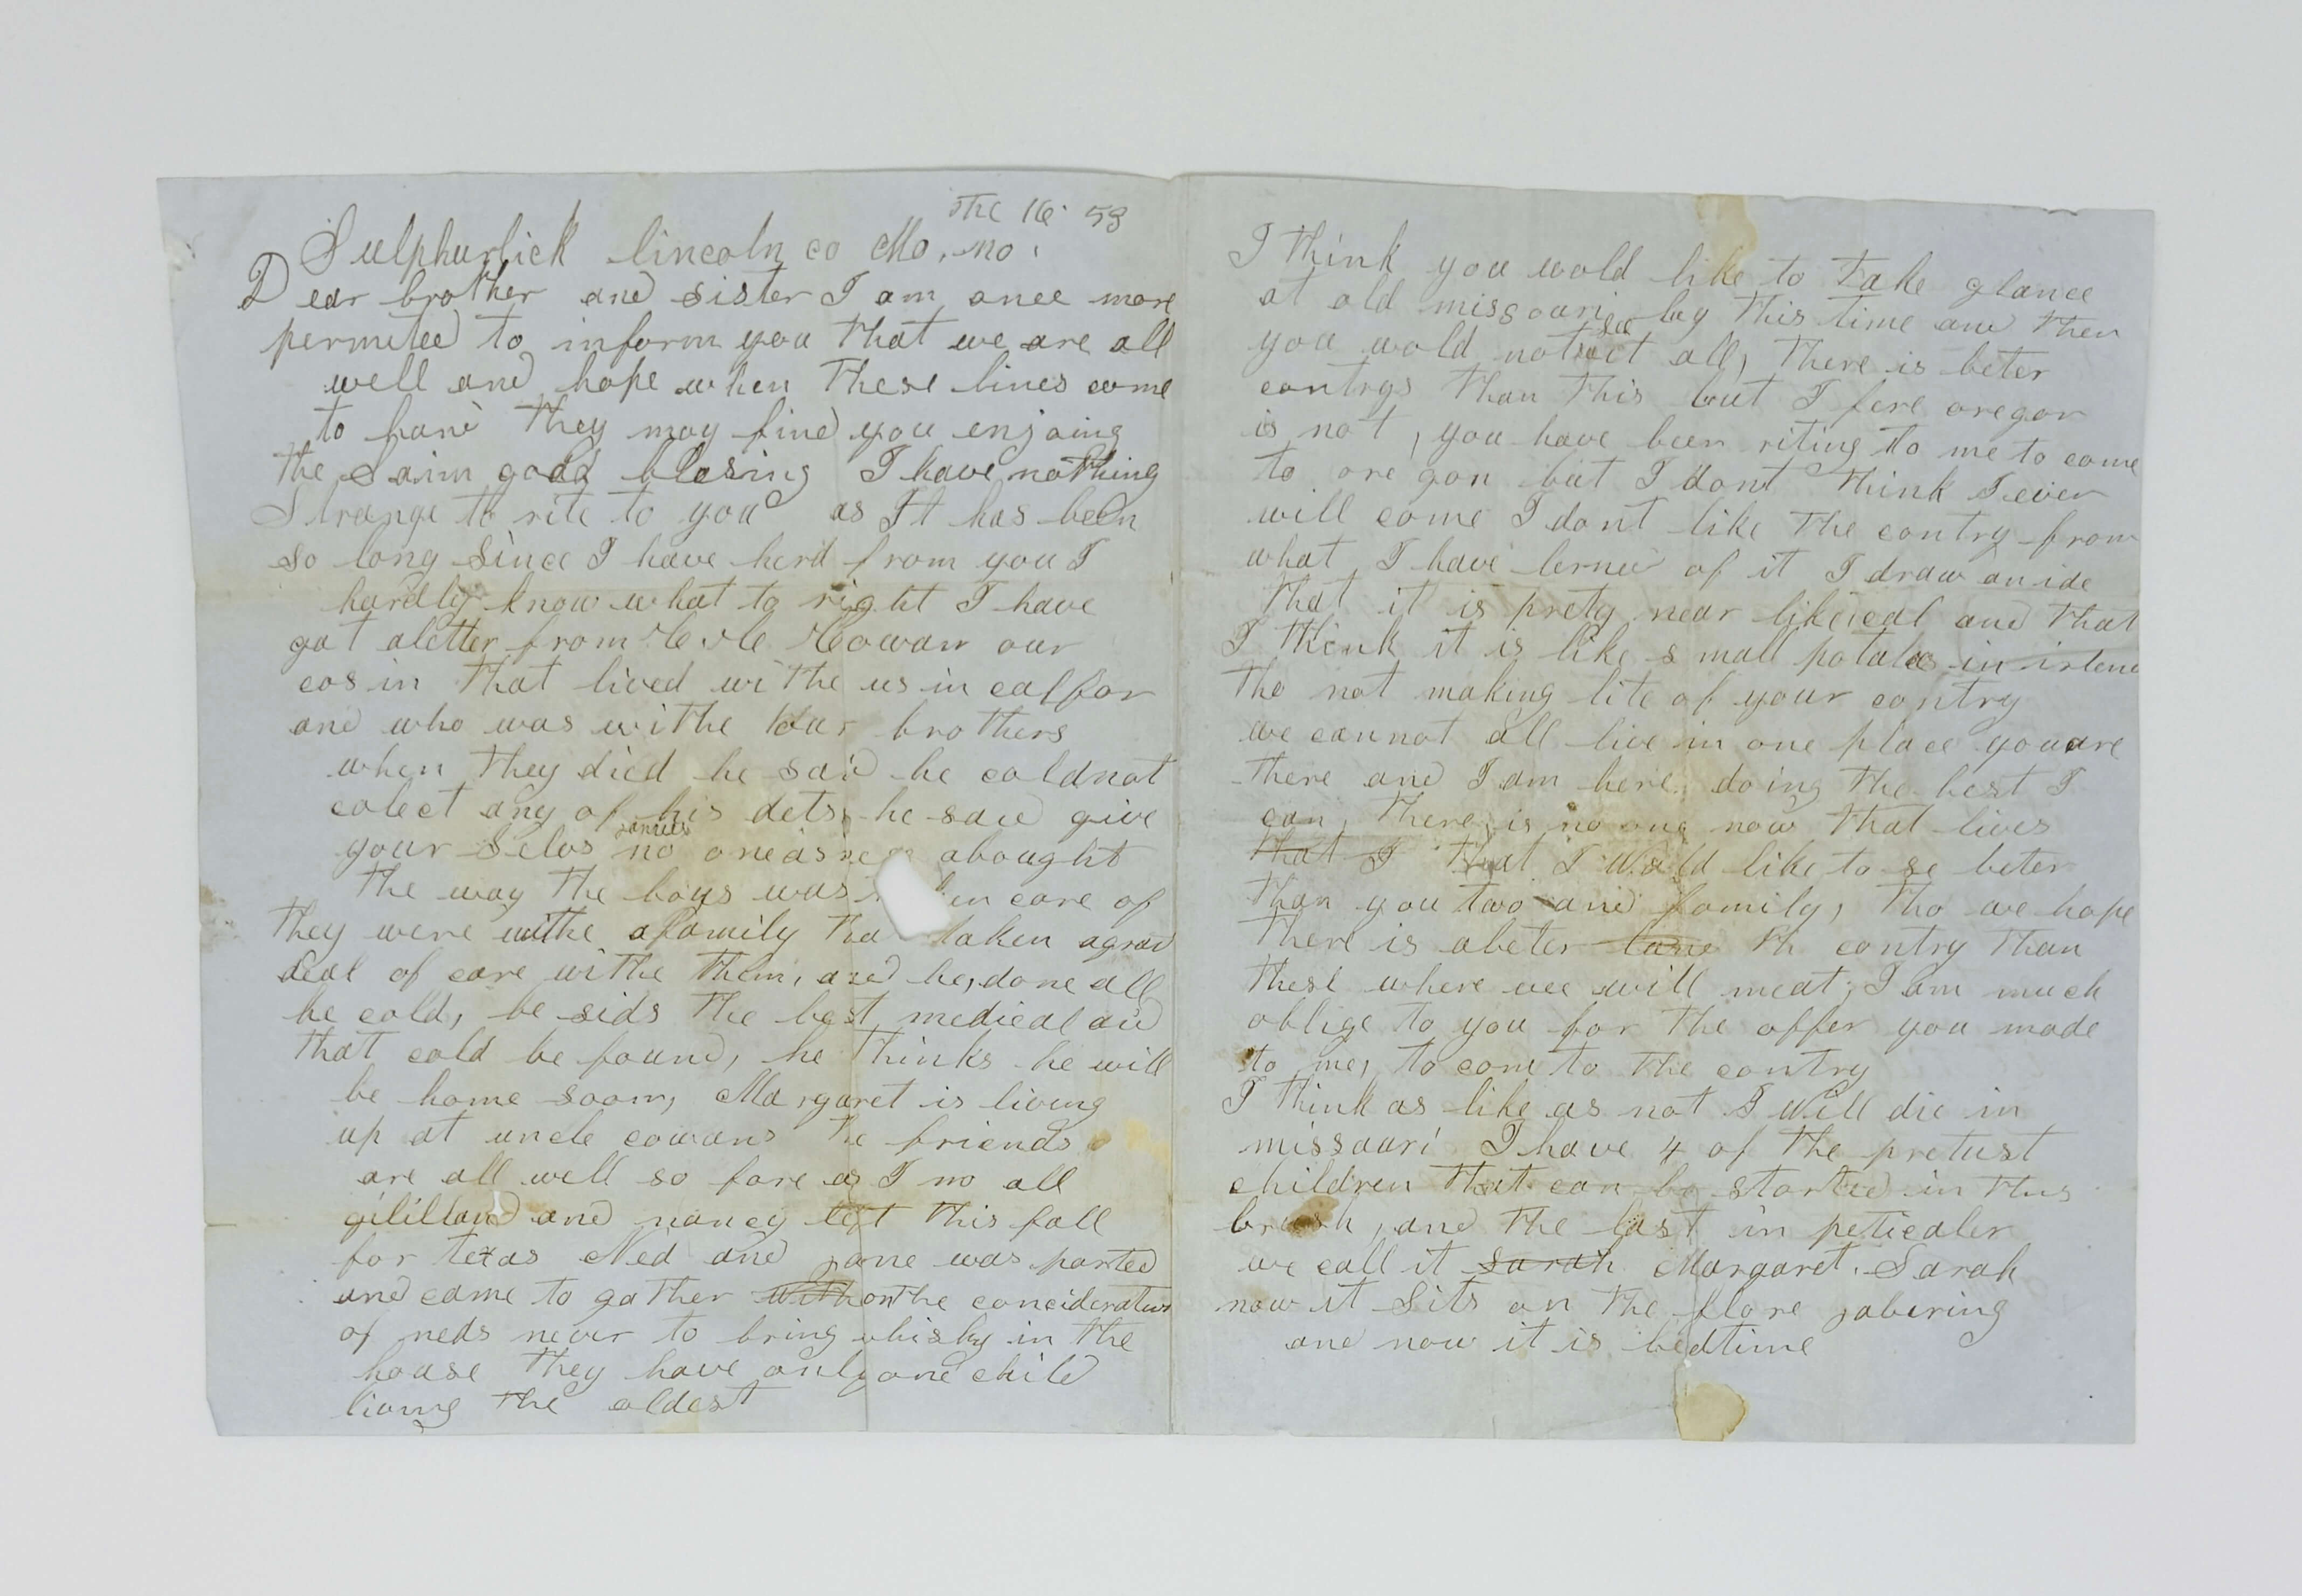 the 16 53
Sulphurlick lincoln co Mo. no.
Dear brother and sister I am once more
permited to inform you that we are all
well and hope when these lines come
to hand they may find you enjoing
the saim good blesing I have nothing
Strange to rite to you as It has been
so long since I have herd from you I
hardly know what to right I have
got aletter from Cowan our
cosin that lived withe us in calfor
and who was withe our brothers
when they died he said he coldnot
colect any of his dets, he said give
your Selvs no oneasiness abought
the way the boys was en care of
they were withe afamily tha taken agrad
deal of care withe them, and he, done all
he cold, be sids the best medical aid
that cold be found, he thinks he will
be home soon, Margaret is living
up at uncle cowans the friends
are all well so fare as I no all
gililland and nancy left this fall
for texas Ned and jane was parted
and came to gather with on the concideration
of neds never to bring whisky in the
house they have only one child
living the oldest
I think you wold like to take glance
at old missouri by this time and then
you wold not se it all, there is beter
contrys than this but I fere oregon
is not, you have been riting to me to come
to oregon but I dont think I ever
will come I dont like the contry from
what I have lerned of it I draw an ide
that it is prety near like and that
I think it is like small potatoes in irland
tho not making lite of your contry
we cannot all live in one place you are
there and I am here doing the best I
can, there is no one now that lives
that I that I Wold like to se beter
than you two and family, tho we hope
there is abeter land th contry than
these where wee will meat, I am much
oblige to you for the offer you made
to me, to com to the contry
I think as like as not I Will die in
missouri I have 4 of the pretust
children that can be started in this
brush, and the last in peticaler
we call it sarah Margaret. Sarah
now it sits on the flore jabering
and now it is bedtime